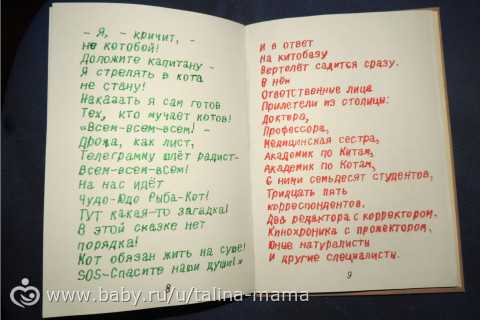 - Я, - кричит, -
не котобой!
Доложите капитану -
Я стрелять в кота
не стану!
Наказать я сам готов
Тех, кто мучает котов!
«Всем-всем-всем! -
Дрожа, как лист,
Телеграмму шлёт радист-
Всем-всем-всем!
На нас идёт
Чудо-Юдо Рыба-Кот!
Тут какая-то загадка!
В этой сказке нет
порядка!
Кот обязан жить на суше!
SOS-Спасите наши души!»
8
И в ответ
На китобазу
Вертолёт садится сразу.
В нём
Ответственные лица
Прилетели из столицы:
Доктора,
Профессора,
Медицинская сестра,
Академик по Китам,
Академик по Котам,
С ними семьдесят студентов,
Тридцать пять
корреспондентов,
Два редактора с корректором,
Кинохроника с прожектором,
Юные натуралисты
И другие специалисты.
9
www.baby.ru/u/talina-mama